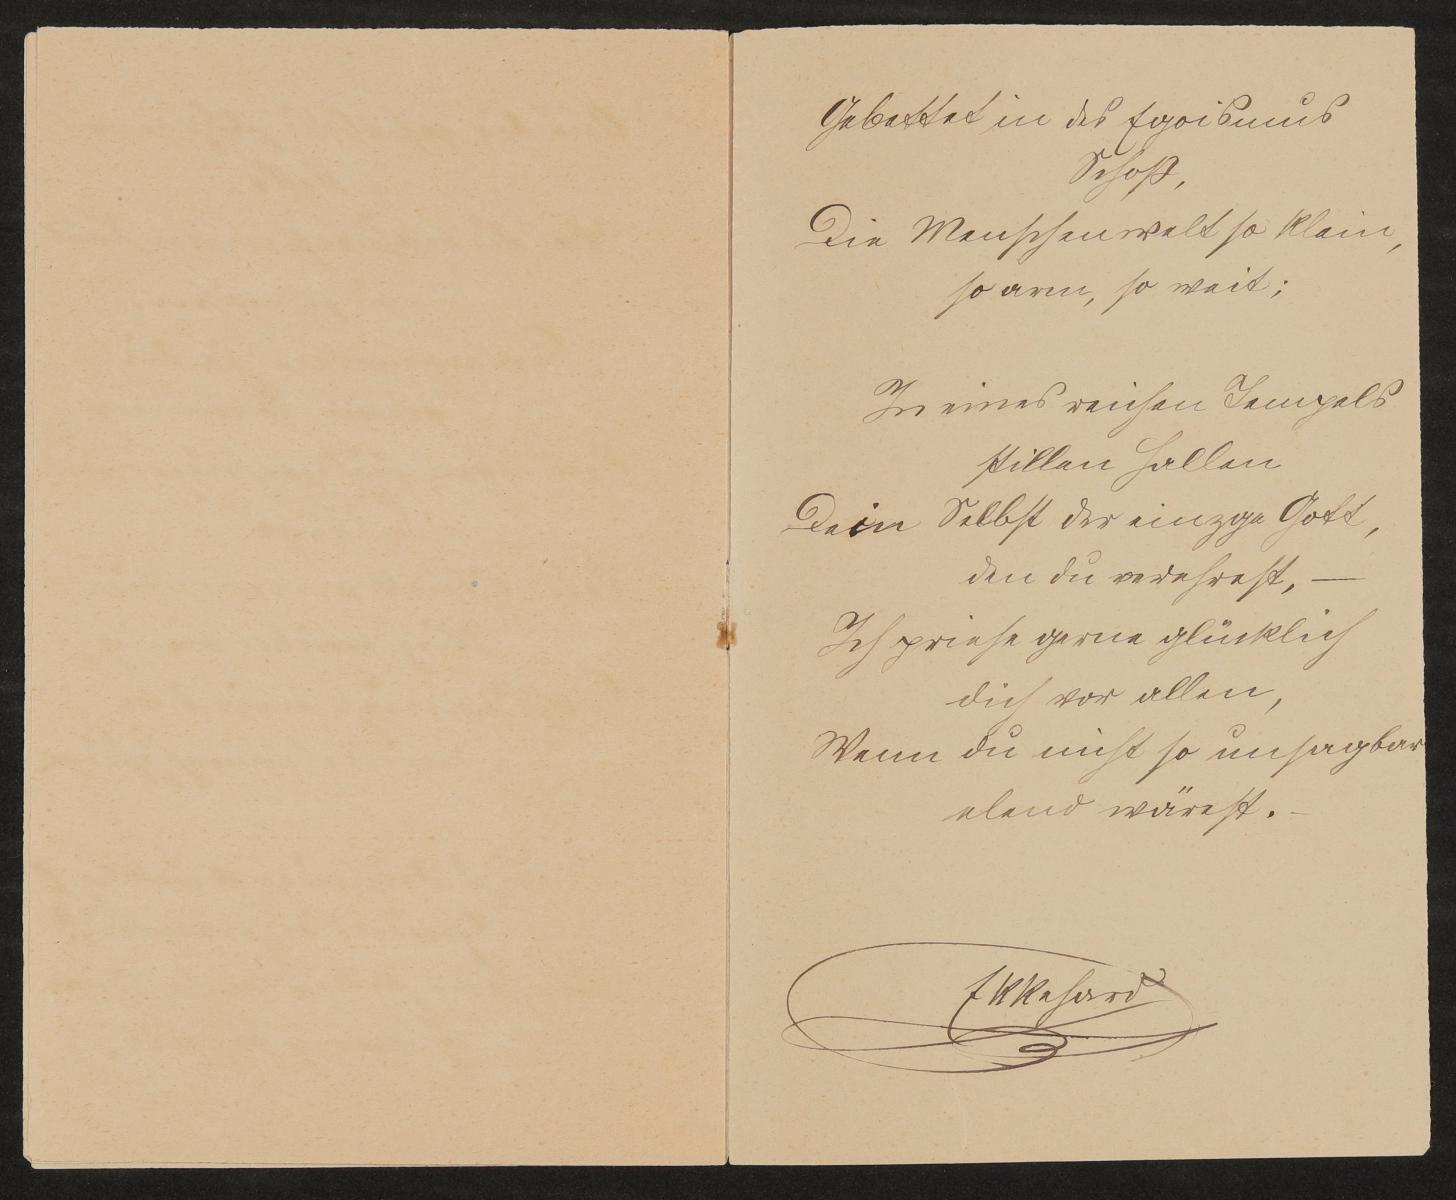 Gebettet in des Egoismus
Schoß,
Die Menschenwelt so klein,
so arm, so weit;
In eines reichen Tempels
stillen Hallen
Dein Selbst der einzge Gott,
den du verehrest, —
Ich priese gerne glücklich
dich vor allen,
Wenn du nicht so unsagbar
elend wärest. –
Ekkehard